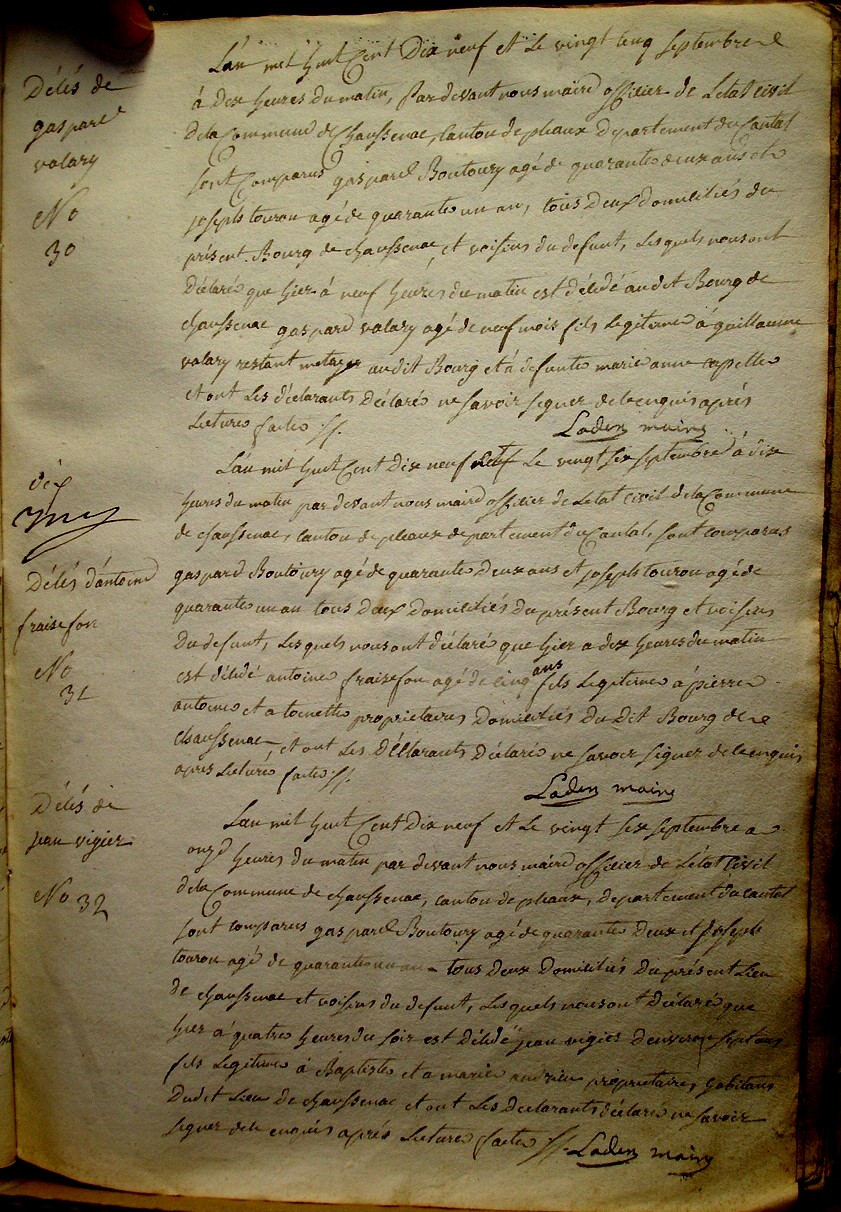 Décés de
gaspard
valary
No
30
L'an mil huit Cent Dix neuf et Le vingt cinq septembre
à Dix heures du matin, Par devant nous maire officier de L'etat civil
Dela Commune de Chaussenac, Canton de pleaux Departement du Cantal
sont Comparus gaspard Boutoury agé de quarante deux ans et
joseph touron agé de quarante un an, tous Deux domiciliés du
présent Bourg de chaussenac, et voisins du defunt, Lesquels nous ont
Déclaré que hier à neuf heures du matin est décédé audit Bourg de
chaussenac gaspard valary agé de neuf mois fils Legitime à guillaume
valary restant metayer audit Bourg et à defunte marie anne capelle
et ont Les déclarants Déclaré ne savoir signer de ce enquis aprés
Lecture faite //.
Laden maire
déx
Décés d'antoine
fraisefon
No
31
L'an mil huit Cent Dix neuf Le vingt six septembre à dix
heures du matin par devant nous maire officier de L'etat Civil dela Commune
de chaussenac, Canton de pleaux departement du Cantal, sont comparus
gaspard Boutoury agé de quarante Deux ans et joseph touron agé de
quarante un an tous Deux Domiciliés du présent Bourg et voisins
Du defunt, Lesquels nous ont déclaré que hier a dix heures du matin
est décédé antoine fraisefon agé de cinq ans fils Legitime à pierre
antoine et a toinette proprietaires Domiciliés du dit Bourg de
chaussenac, et ont Les Déclarants Déclaré ne savoir signer de ce enquis
apres Lecture faite //.
Laden maire
Décés de
jean vigier
No 32
L'an mil huit Cent Dix neuf et Le vingt six septembre a
onze heures du matin par devant nous maire officier de L'etat Civil
dela Commune de chaussenac, canton de pleaux, departement du cantal
sont comparus gaspard Boutoury agé de quarante Deux et joseph
touron agé de quarante un an tous deux Domiciliés du présent Lieu
de chaussenac et voisins du defunt, Lesquels nous ont déclaré que
hier à quatre heures du soir est décédé jean vigier d'environ sept ans
fils Legitime à Baptiste et a marie andrieu proprietaires habitans
Dudit Lieu de chaussenac et ont Les declarants déclaré ne savoir
signer de ce enquis aprés Lecture faite //.
Laden maire